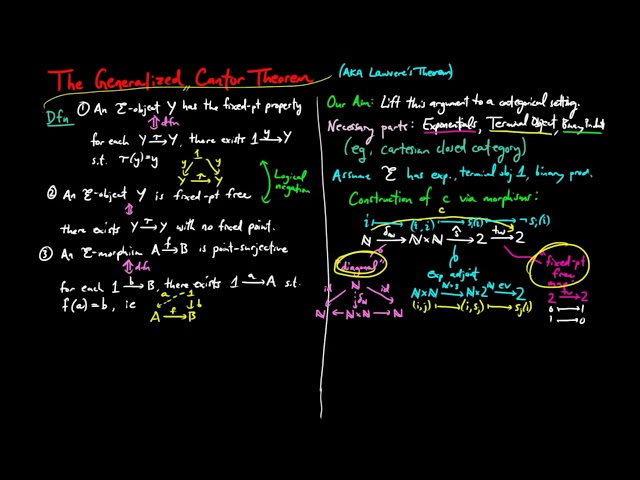 The Generalized Cantor Theorem
(AKA Lawvere's Theorem)
Dfn ① An 𝒞-object Y has the fixed-pt property
⇕ dfn
for each Y —τ→ Y, there exists 1 —y→ Y
s.t. τ(y)=y
1
y y
Y —τ→ Y
Logical negation
② An 𝒞-object Y is fixed-pt free
⇕
there exists Y —τ→ Y with no fixed point.
③ An 𝒞-morphism A —f→ B is point-surjective
⇕ dfn
for each 1 —b→ B, there exists 1 —a→ A s.t.
f(a)=b, ie
a 1
b
A —f→ B
Our Aim: Lift this argument to a categorical setting.
Necessary parts: Exponentials, Terminal Object, Binary Products
(eg, cartesian closed category)
Assume 𝒞 has exp., terminal obj 1, binary prod.
Construction of c via morphisms:
c
i ↦ (i,i) ↦ s_i(i) ↦ ¬s_i(i)
ℕ —δ_ℕ→ ℕ×ℕ —ŝ→ 2 —tw→ 2
"diagonal"
exp adjoint
fixed-pt
free
ℕ
id δ_ℕ id
ℕ ← ℕ×ℕ → ℕ
ℕ×ℕ —ℕ×s→ ℕ×2^ℕ —ev→ 2
(i,j) ↦ (i,s_j) ↦ s_j(i)
2 —tw→ 2
0 ↦ 1
1 ↦ 0